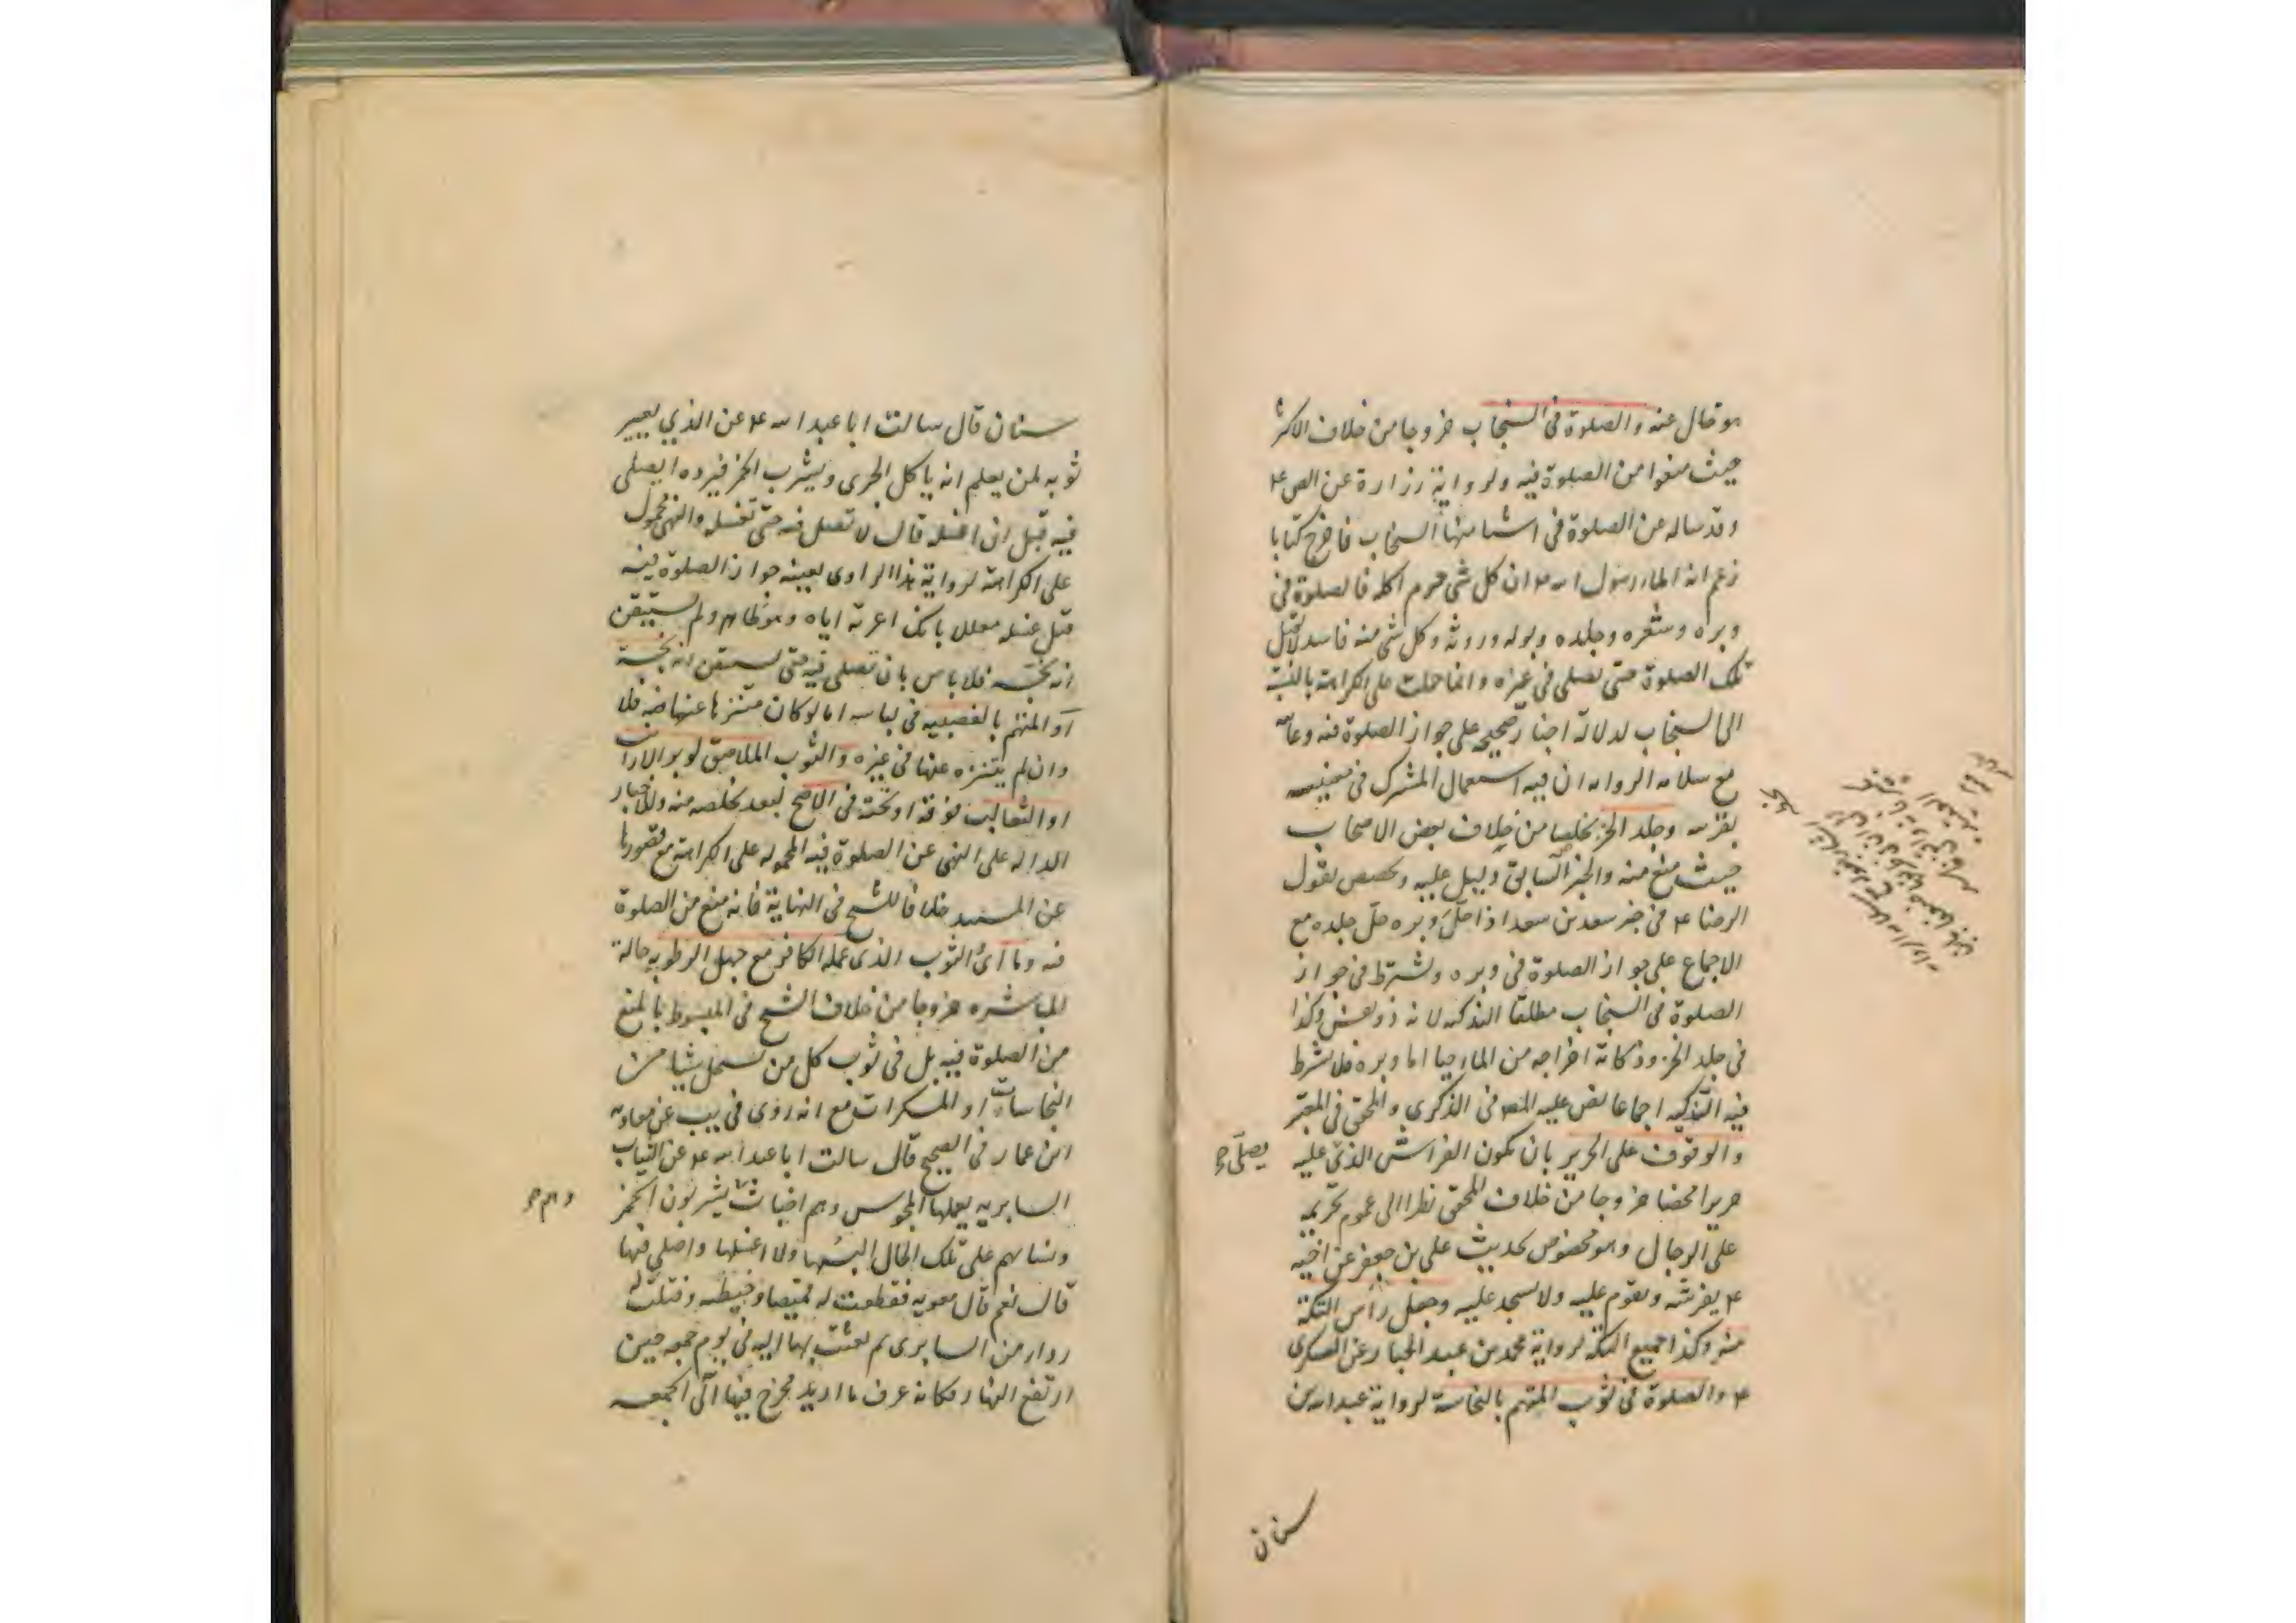 هو قال عنه والصلوة فى السنجاب خروجا من خلاف الاكثر
حيث منعوا من الصلوة فيه ولرواية زرارة عن الص ع
وقد ساله عن الصلوة فى اشيا منها السنجاب فاخرج كتابا
زعم انه املاء رسول الله ص ان كل شى حرم اكله فالصلوة فى
وبره وشعره وجلده وبوله وروثه وكل شى منه فاسد لاتقبل
تلك الصلوة حتى يصلى فى غيره وانما حملت على الكراهة بالنسبة
الى السنجاب لدلالة اخبار صحيحه على جواز الصلوة فيه وعامه
مع سلامه الروايه ان فيه استعمال المشترك فى معنييه
بقرينه وجلد الخز تخلصا من خلاف بعض الاصحاب
حيث منع منه والخبر السابق دليل عليه وتخصص بقول
الرضا ع فى خبر سعد بن سعد اذا حل وبره حل جلده مع
الاجماع على جواز الصلوة فى وبره ويشترط فى جواز
الصلوة فى السنجاب مطلقا التذكيه لانه ذو نفس وكذا
فى جلد الخز وذكاته اخراجه من الماء حيا اما وبره فلا يشرط
فيه التذكيه اجماعا نص عليه المص فى الذكرى والمحقق فى المعتبر
والوقوف على الحرير بان يكون الفراش الذى عليه
يصلى
حريرا محضا خروجا من خلاف المحقق نظرا الى عموم تحريمه
على الرجال وهو مخصوص بحديث على بن جعفر عن اخيه
ع يفرشه ويقوم عليه ولايسجد عليه وجعل راس التكة
منه وكذا جميع التكة لرواية محمد بن عبد الجبار عن العسكرى
ع والصلوة فى ثوب المتهم بالنجاسة لرواية عبد الله بن
سنان
سنان قال سالت ابا عبد الله ع عن الذي يعير
ثوبه لمن يعلم انه ياكل الجرى ويشرب الخمر فيرده ايصلى
فيه قبل ان اغسله قال لا تصل فيه حتى تغسله والنهى محمول
على الكراهة لرواية هذا الراوى بعينه جواز الصلوة فيه
قبل غسله معللا بانك اعرته اياه وهو طاهر ولم تستيقن
انه نجسه فلا باس بان تصلى فيه حتى تستيقن انه نجسه
او المتهم بالغصبيه فى لباسه اما لو كان متنزها عنها فيه فلا
وان لم يتنزه عنها فى غيره والثوب الملاصق لوبر الارانب
او الثعالب فوقه او تحته فى الاصح لبعد تخلصه منه وللاخبار
الداله على النهى عن الصلوة فيه المحموله على الكراهة مع قصورها
عن المستند خلافا للشيخ فى النهاية فانه منع من الصلوة
فيه وما اى الثوب الذى عمله الكافر مع جهل الرطوبه حالة
المباشره خروجا من خلاف الشيخ فى المبسوط بالمنع
من الصلوة فيه بل فى ثوب كل من يستحل شيئا من
النجاسات او المسكرات مع انه روى فى يب عن معاويه
ابن عمار فى الصحيح قال سالت ابا عبد الله ع عن الثياب
السابريه يعملها المجوس وهم اخباث يشربون الخمر
ونساؤهم على تلك الحال البسها ولا اغسلها واصلى فيها
قال نعم قال معويه فقطعت له قميصا وخيطته وفتلت له
ازرار من السابرى ثم بعثت بها اليه فى يوم جمعه حين
ارتفع النهار فكانه عرف ما اريد فخرج فيها الى الجمعه